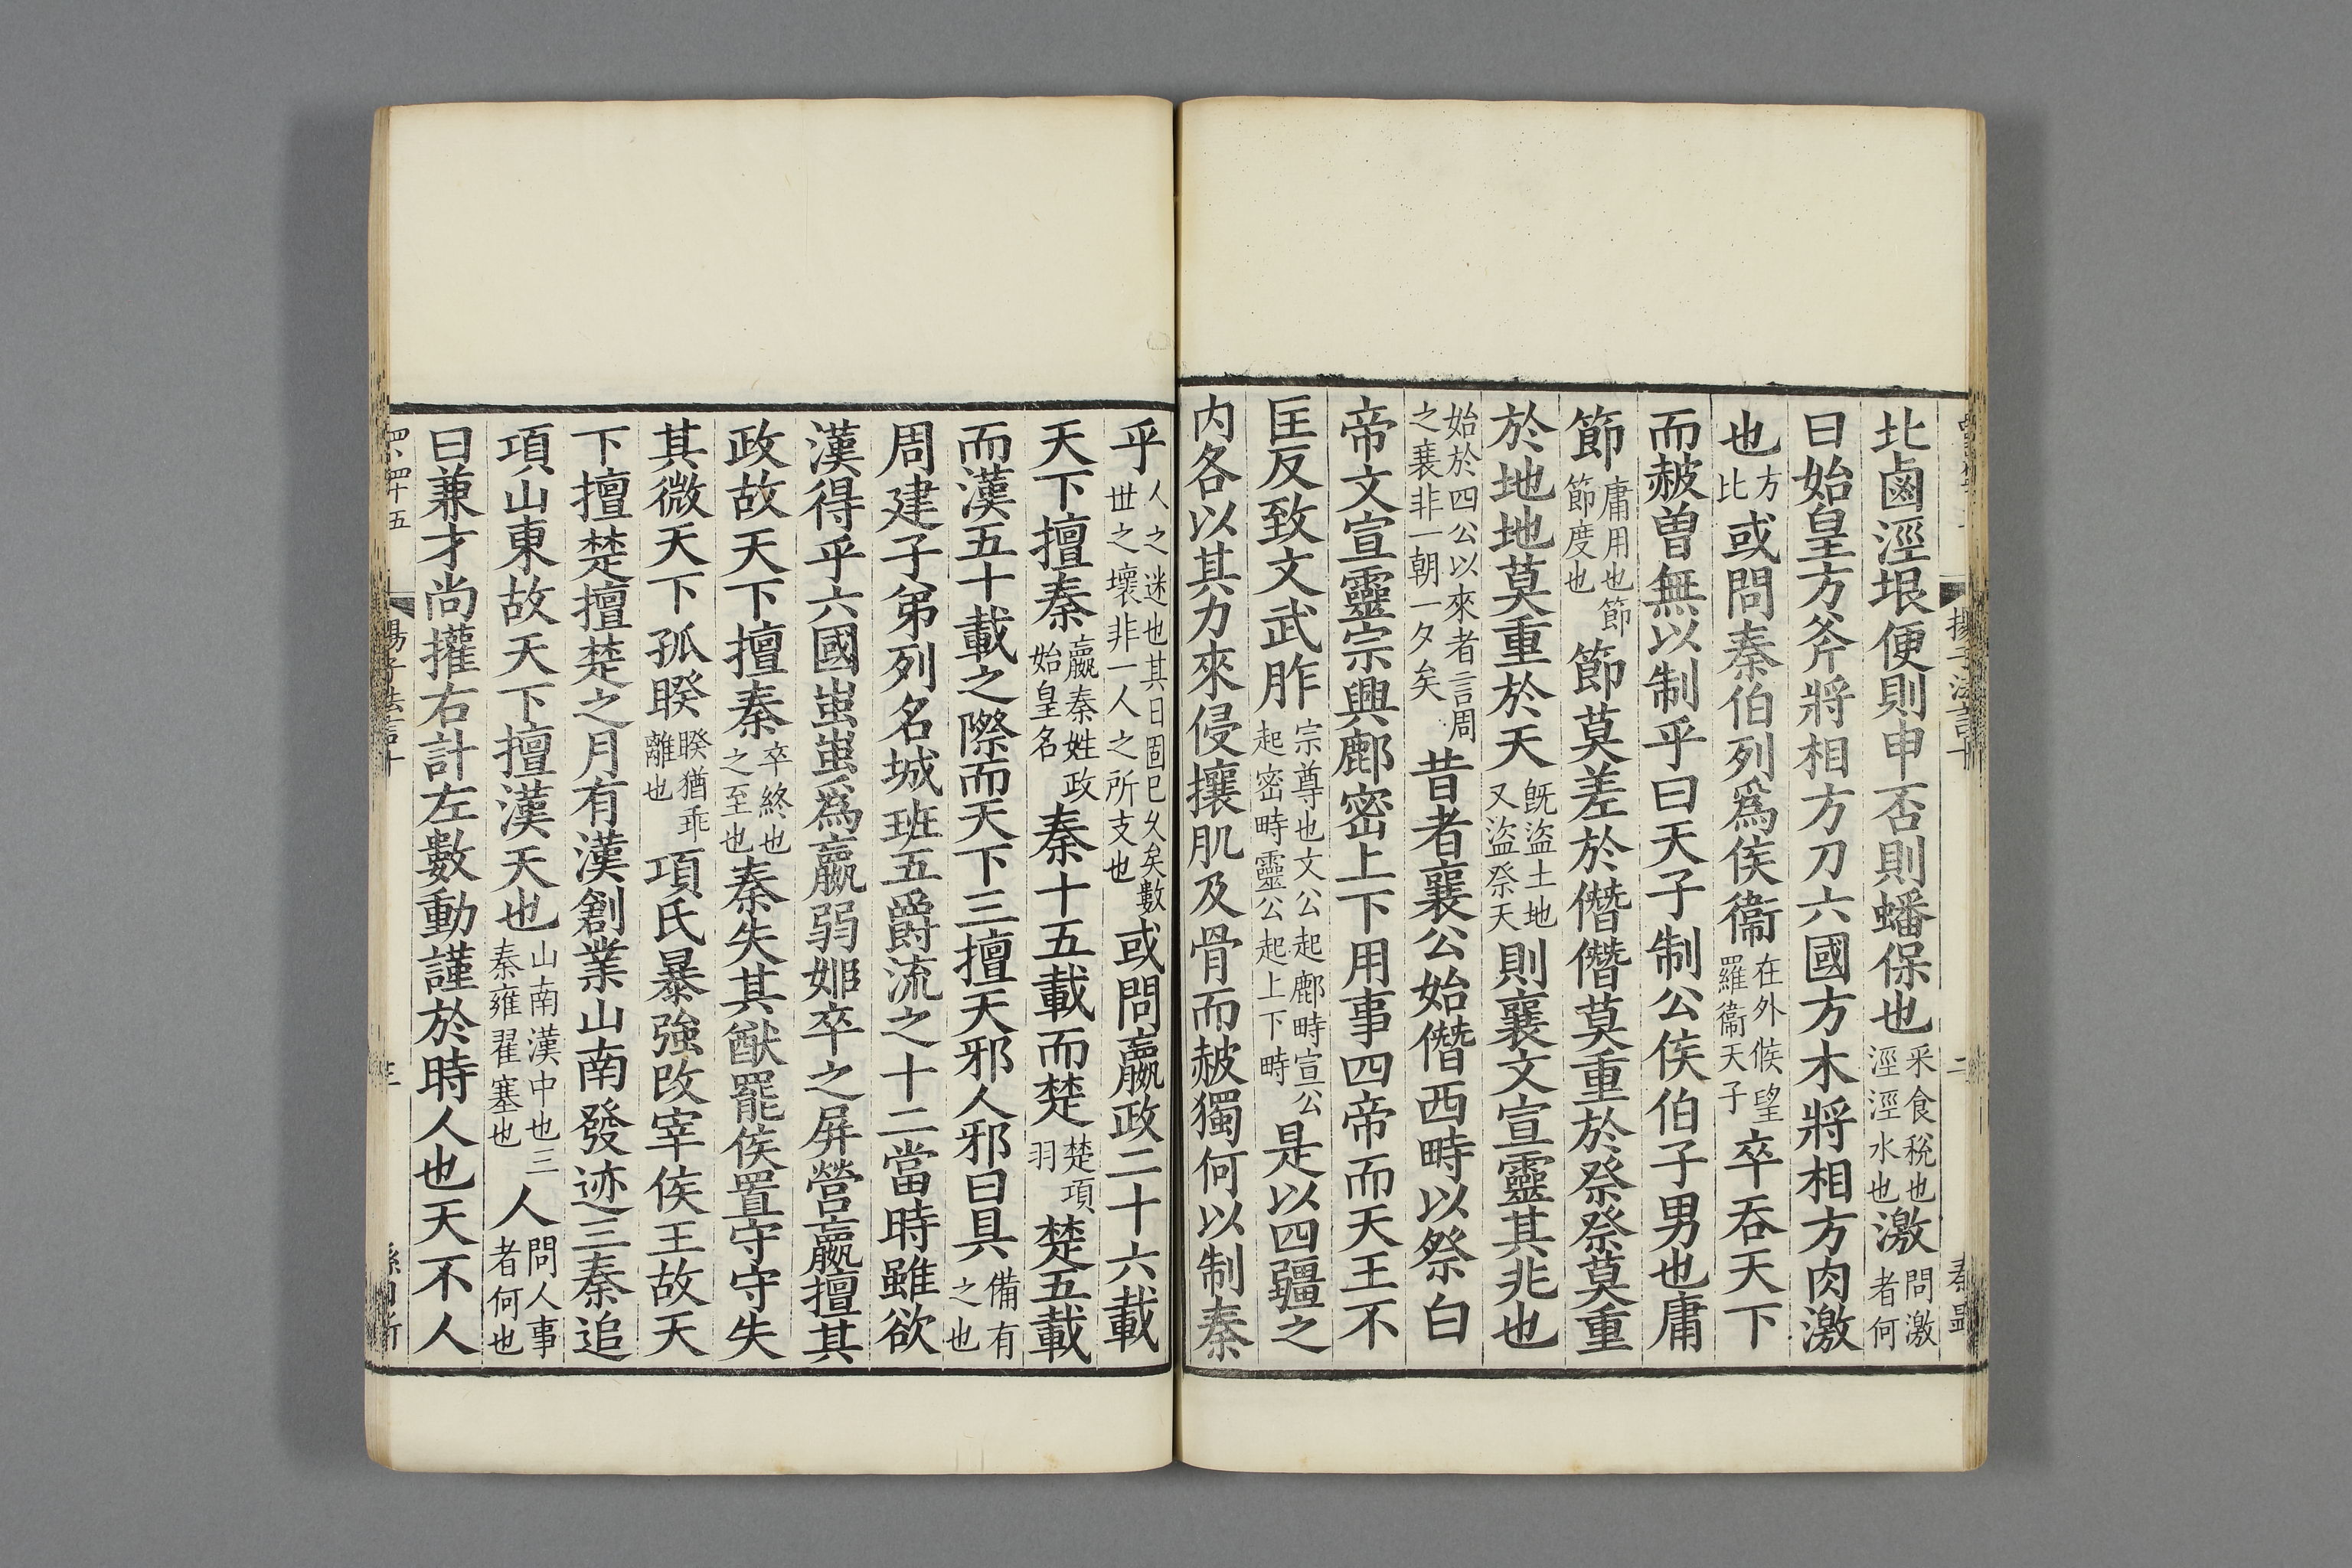 北鹵涇垠便則申否則蟠保也采食稅也涇涇水也激問激者何
曰始皇方斧將相方刀六國方木將相方肉激
也方比或問秦伯列爲侯衞在外候望羅衞天子卒吞天下
而赧曾無以制乎曰天子制公侯伯子男也庸
節庸用也節節度也節莫差於僭僭莫重於祭祭莫重
於地地莫重於天既盜土地又盜祭天則襄文宣靈其兆也
始於四公以來者言周之衰非一朝一夕矣昔者襄公始僭西畤以祭白
帝文宣靈宗興鄜密上下用事四帝而天王不
匡反致文武胙宗尊也文公起鄜畤宣公起密畤靈公起上下畤是以四疆之
内各以其力來侵攘肌及骨而赧獨何以制秦
乎人之迷也其日固已久矣數世之壞非一人之所支也或問嬴政二十六載
天下擅秦嬴秦姓政始皇名秦十五載而楚楚項羽楚五載
而漢五十載之際而天下三擅天邪人邪曰具備有之也
周建子弟列名城班五爵流之十二當時雖欲
漢得乎六國蚩蚩爲嬴弱姬卒之屏營嬴擅其
政故天下擅秦卒終也之至也秦失其猷罷侯置守守失
其微天下孤睽睽猶乖離也項氏暴強改宰侯王故天
下擅楚擅楚之月有漢創業山南發迹三秦追
項山東故天下擅漢天也山南漢中也三秦雍翟塞也人問人事者何也
曰兼才尚權右計左數動謹於時人也天不人